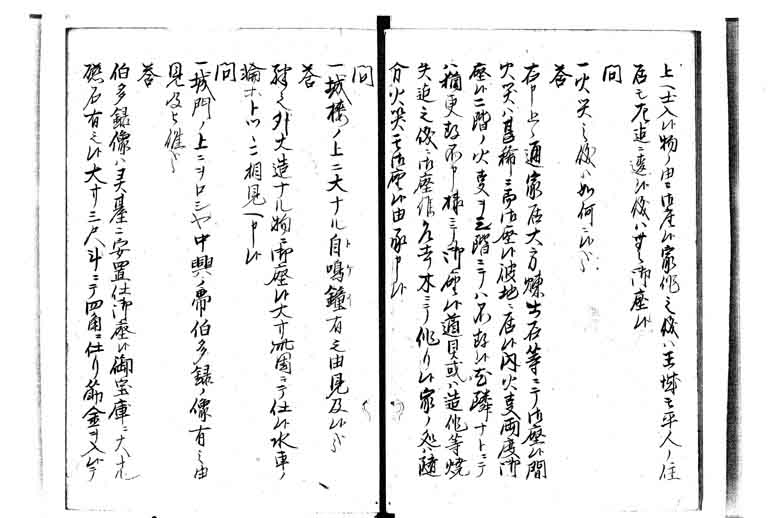 上ヘ士入ル物ノ由ニ御座候家作之儀ハ王城モ平人ノ住
居モ左迄ニ違候儀ハ無御座候
問
一火災之儀ハ如何ニ候哉
答
右申上候通家居大方煉出石等ニ而御座候間
火災ハ甚稀ニ而御座候彼地ニ居候内火事両度御
座候二階ノ火事ヲ三階ニテハ不知候尤隣ナトニテ
ハ猶更知不申様ニ御座候道具或ハ造作等焼
失迄之儀ニ御座候乍去木ニテ作リ候家ノ処ハ随
分火災モ御座候由承申候
問
一城楼ノ上ニ大ナル自鳴鐘トケイ有之由見及候哉
答
殊之外大造ナル物ニ而御座候大サ ニテ仕候水車ノ
輪ホトツヽニ相見ヘ申候
問
一城門ノ上ニヲロシヤ中興ノ帝伯多録ノ像有之由
見及候哉
答
伯多録像ハ其臺ニ安置仕御座候御宝庫ニ大ナル
磁石有之候大サ三尺斗ニテ四角ニ仕リ筋金ヲ入候テ